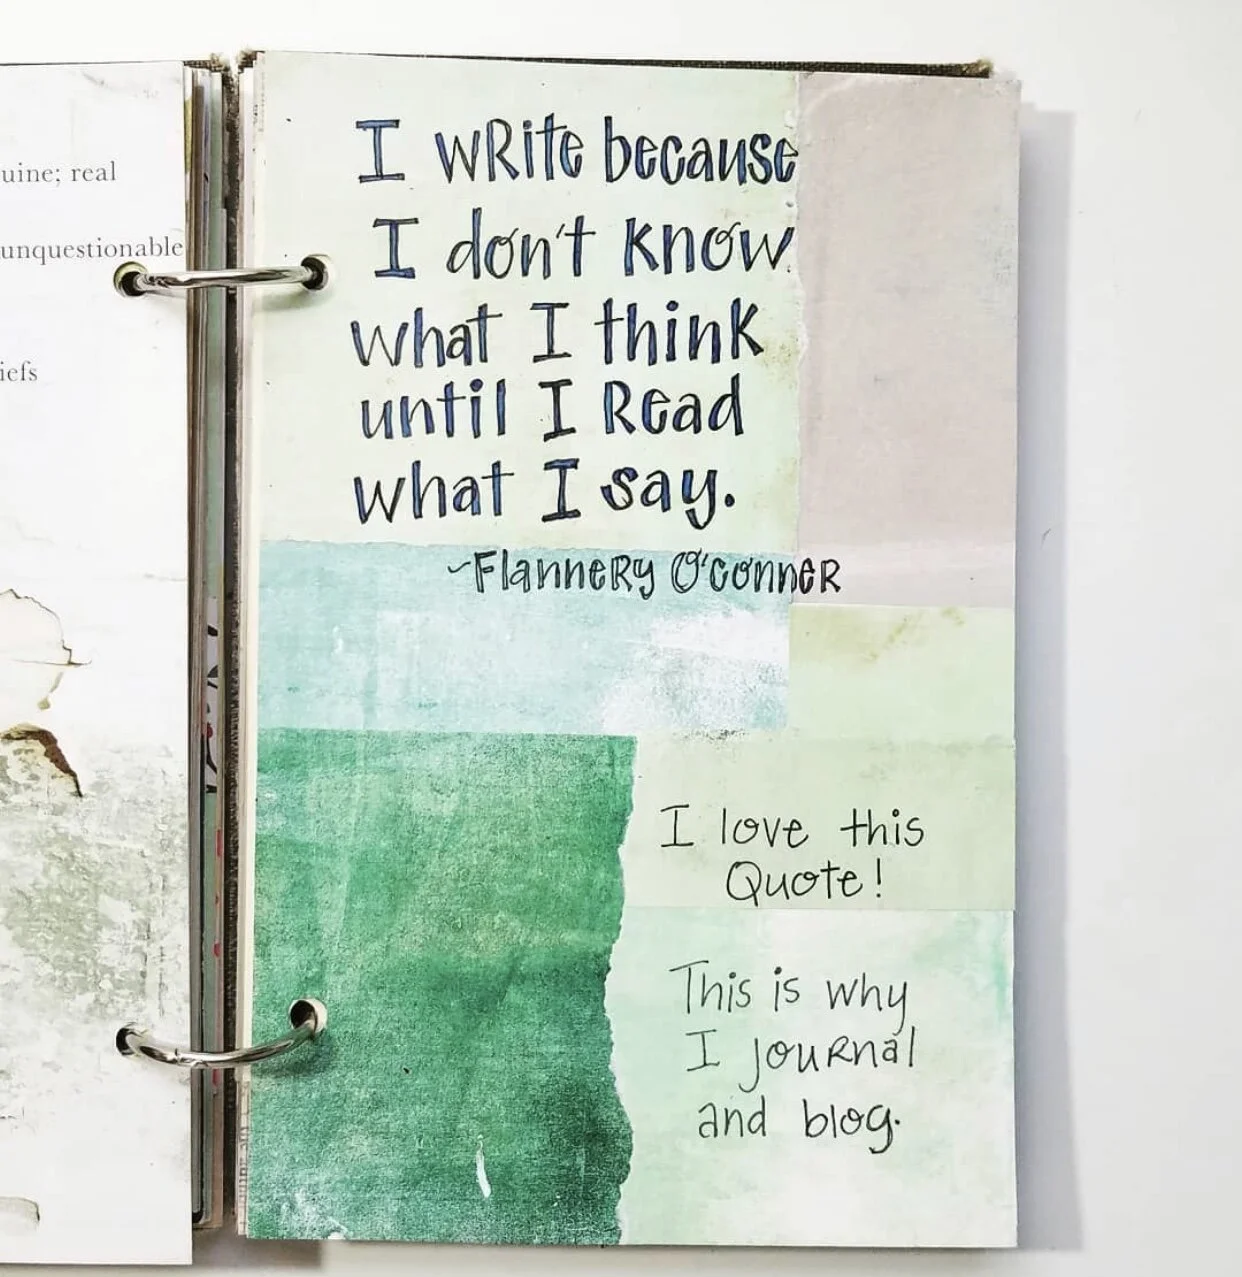 uine; real
unquestionable
iefs
I write because
I don't know
what I think
until I Read
what I say.
~Flannery O'Conner
I love this
Quote!
This is why
I journal
and blog.